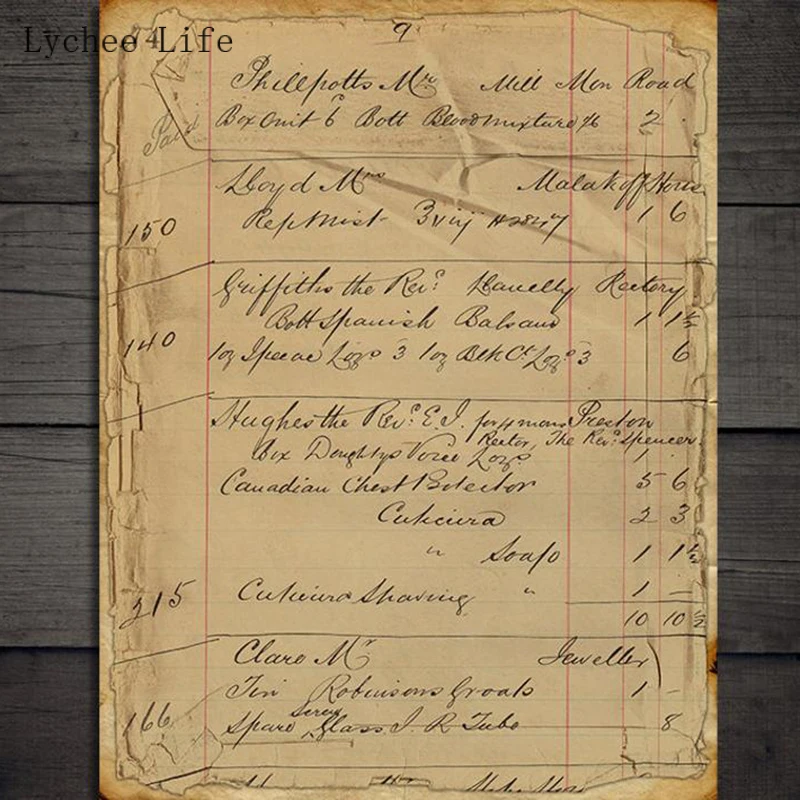 Lychee Life
9
Phillpotts Mr Mill Mon Road
Paid Box Oint 6 Bott Bloodmixture 2
Lloyd Mrs Malakoff House
150 Rep Mist 3viij 1 6
Griffiths the Revd Llanelly Rectory
Bott Spanish Balsam 1 1½
140
1oz Ipecac Lozs 3 1oz Blk Ct Lozs 3 6
Hughes the Revd E. J. for 4 mons Preston
Rector, The Revd Spencer.
Box Doughtys Voice Lozs 1 .
Canadian Chest Protector 5 6
Cuticura 2 3
" Soap 1 1½
215 Cuticura Shaving " 1 —
10 10 ½
Clare Mr Jeweller
Tin Robinsons Groats 1 —
Screw
166 Spare Glass I. R Tube 8